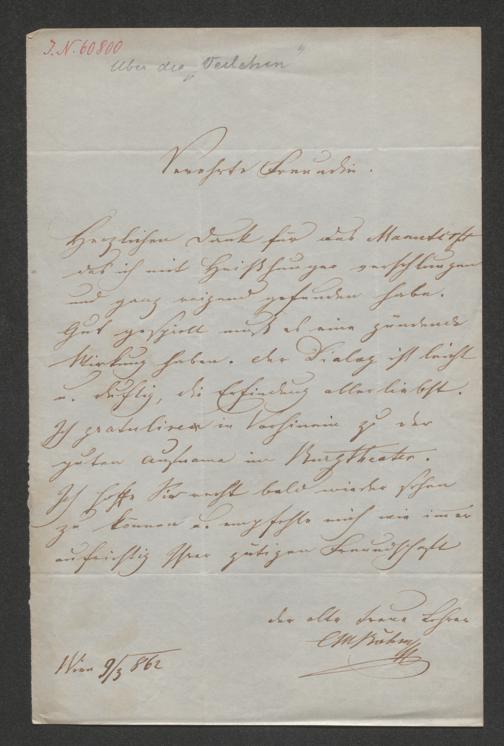 J.N. 60800
Über die „Veilchen"
Verehrte Freundin.
Herzlichen Dank für das Manuscript
das ich mit Heißhunger verschlungen
und ganz reizend gefunden habe.
Gut gespielt muß es eine zündende
Wirkung haben. der Dialog ist leicht
u. duftig, die Erfindung allerliebst.
Ich gratulire in Vorhinein zu der
guten Aufname im Burgtheater.
Ich hoffe Sie recht bald wieder sehen
zu können u. empfehle mich wie immer
aufrichtig Ihrer gütigen Freundschaft
der alte treue Lehrer
Wien 9/3 862